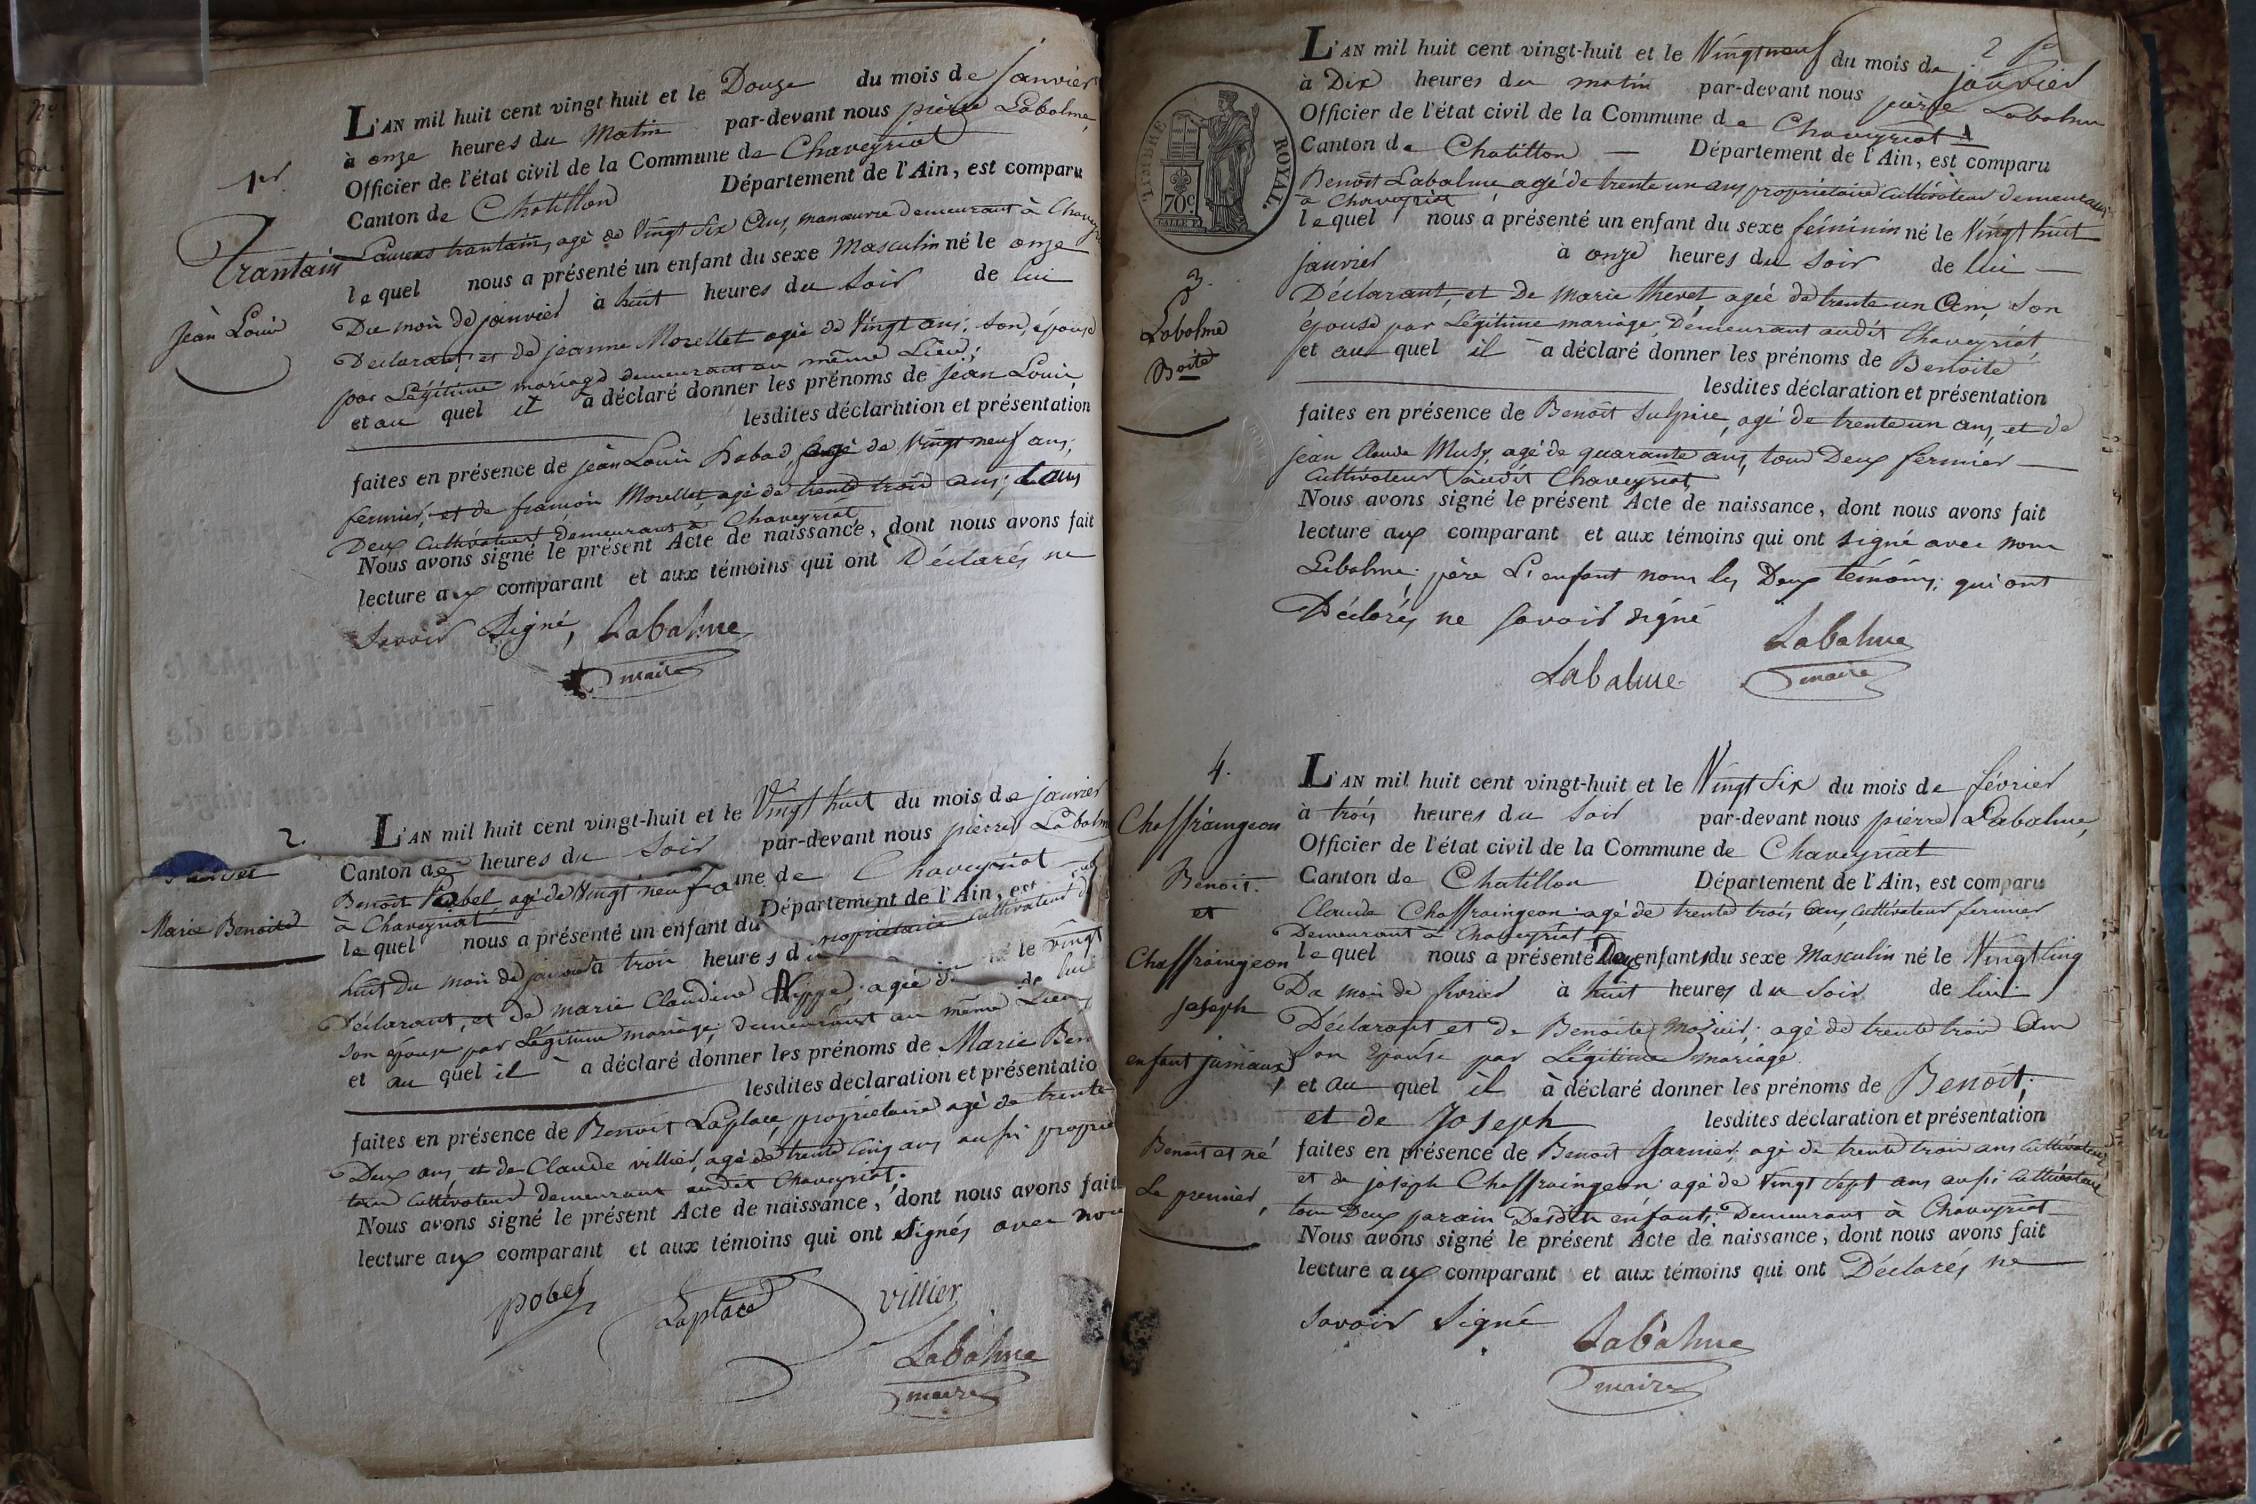 1er
Trantain
Jean Louis
L'AN mil huit cent vingt-huit et le Douze du mois de janvier
à onze heures du Matin par-devant nous pierre Labalme,
Officier de l'état civil de la Commune de Chaveyriat
Canton de Chatillon Département de l'Ain, est comparu
Laurens trantain, agé de Vingt Six Ans, manœuvre demeurant à
lequel nous a présenté un enfant du sexe Masculin né le onze
Du mois de janvier à huit heures du Soir de lui
Déclarant, et de jeanne Morellet agée de Vingt ans, son épouse
par Légitime mariage demeurant au même Lieu;
et au quel il a déclaré donner les prénoms de jean Louis
lesdites déclaration et présentation
faites en présence de jean Louis agé de Vingt neuf ans,
fermier, et de françois Morellet, agé de trente trois ans, tous
Deux Cultivateurs demeurant à Chaveyriat
Nous avons signé le présent Acte de naissance, dont nous avons fait
lecture aux comparant et aux témoins qui ont Déclarés ne
Savoir Signé, Labalme
maire
2.
Marie Benoite
L'AN mil huit cent vingt-huit et le Vingt huit du mois de janvier
heures du Soir par-devant nous pierre
Canton de de Chaveyriat
Département de l'Ain, est
Benoit agé de Vingt neuf
à Chaveyriat proprietaire cultivateur
lequel nous a présenté un enfant du né le vingt
huit Du mois de janvier à trois heures du de lui
Déclarant, et de marie Claudine agée
Son épouse par Légitime mariage, demeurant au même Lieu
et au quel il a déclaré donner les prénoms de Marie Ben
lesdites déclaration et présentatio
faites en présence de Benoit Laplace, proprietaire agé de trente
Deux ans, et de Claude villier, agé de trente Cinq ans aussi proprie
tous Cultivateurs demeurant audit Chaveyriat.
Nous avons signé le présent Acte de naissance, dont nous avons fait
lecture aux comparant et aux témoins qui ont Signés avec nou
pobel Laplace villier
Labalme
maire
2
TIMBRE ROYAL.
70c
3.
Labalme
Boite
L'AN mil huit cent vingt-huit et le Vingt neuf du mois de janvier
à Dix heures du matin par-devant nous pierre Labalme
Officier de l'état civil de la Commune de Chaveyriat
Canton de Chatillon Département de l'Ain, est comparu
Benoit Labalme agé de trente un ans proprietaire cultivateur demeurant
à Chaveyriat
lequel nous a présenté un enfant du sexe féminin né le Vingt huit
janvier à onze heures du Soir de lui
Déclarant, et De marie thevet agée de trente un Ans, Son
épouse par Légitime mariage, Demeurant audit Chaveyriat,
et au quel il a déclaré donner les prénoms de Benoite
lesdites déclaration et présentation
faites en présence de Benoit Sulpice, agé de trente un ans, et de
jean Claude Musy, agé de quarante ans, tous Deux fermier
Cultivateurs audit Chaveyriat
Nous avons signé le présent Acte de naissance, dont nous avons fait
lecture aux comparant et aux témoins qui ont signé avec nous
Labalme, père L'enfant non les Deux temoins, qui ont
Déclarés ne Savoir signé
Labalme
Labalme
maire
4.
Chaffraingeon
Benoit.
et
Chaffraingeon
joseph
enfant jumaux
Benoit et né
Le premier,
L'AN mil huit cent vingt-huit et le Vingt Six du mois de février
à trois heures du Soir par-devant nous pierre Labalme,
Officier de l'état civil de la Commune de Chaveyriat
Canton de Chatillon Département de l'Ain, est comparu
Claude Chaffraingeon agé de trente trois ans, cultivateur fermier
Demeurant à Chaveyriat
lequel nous a présenté Deux enfants du sexe Masculin né le Vingt Cinq
Du mois de fevrier à huit heures du Soir de lui
Déclarant et de Benoite agé de trente trois Ans
Son Epouse par Légitime mariage.
et au quel il a déclaré donner les prénoms de Benoit,
et de Joseph lesdites déclaration et présentation
faites en présence de Benoit Garnier, agé de trente trois ans Cultivateur
et de joseph Chaffraingeon agé de Vingt Sept ans aussi Cultivateur
tous Deux parain Desdits enfants, Demeurant à Chaveyriat
Nous avons signé le présent Acte de naissance, dont nous avons fait
lecture aux comparant et aux témoins qui ont Déclarés ne
Savoir Signé
Labalme
maire